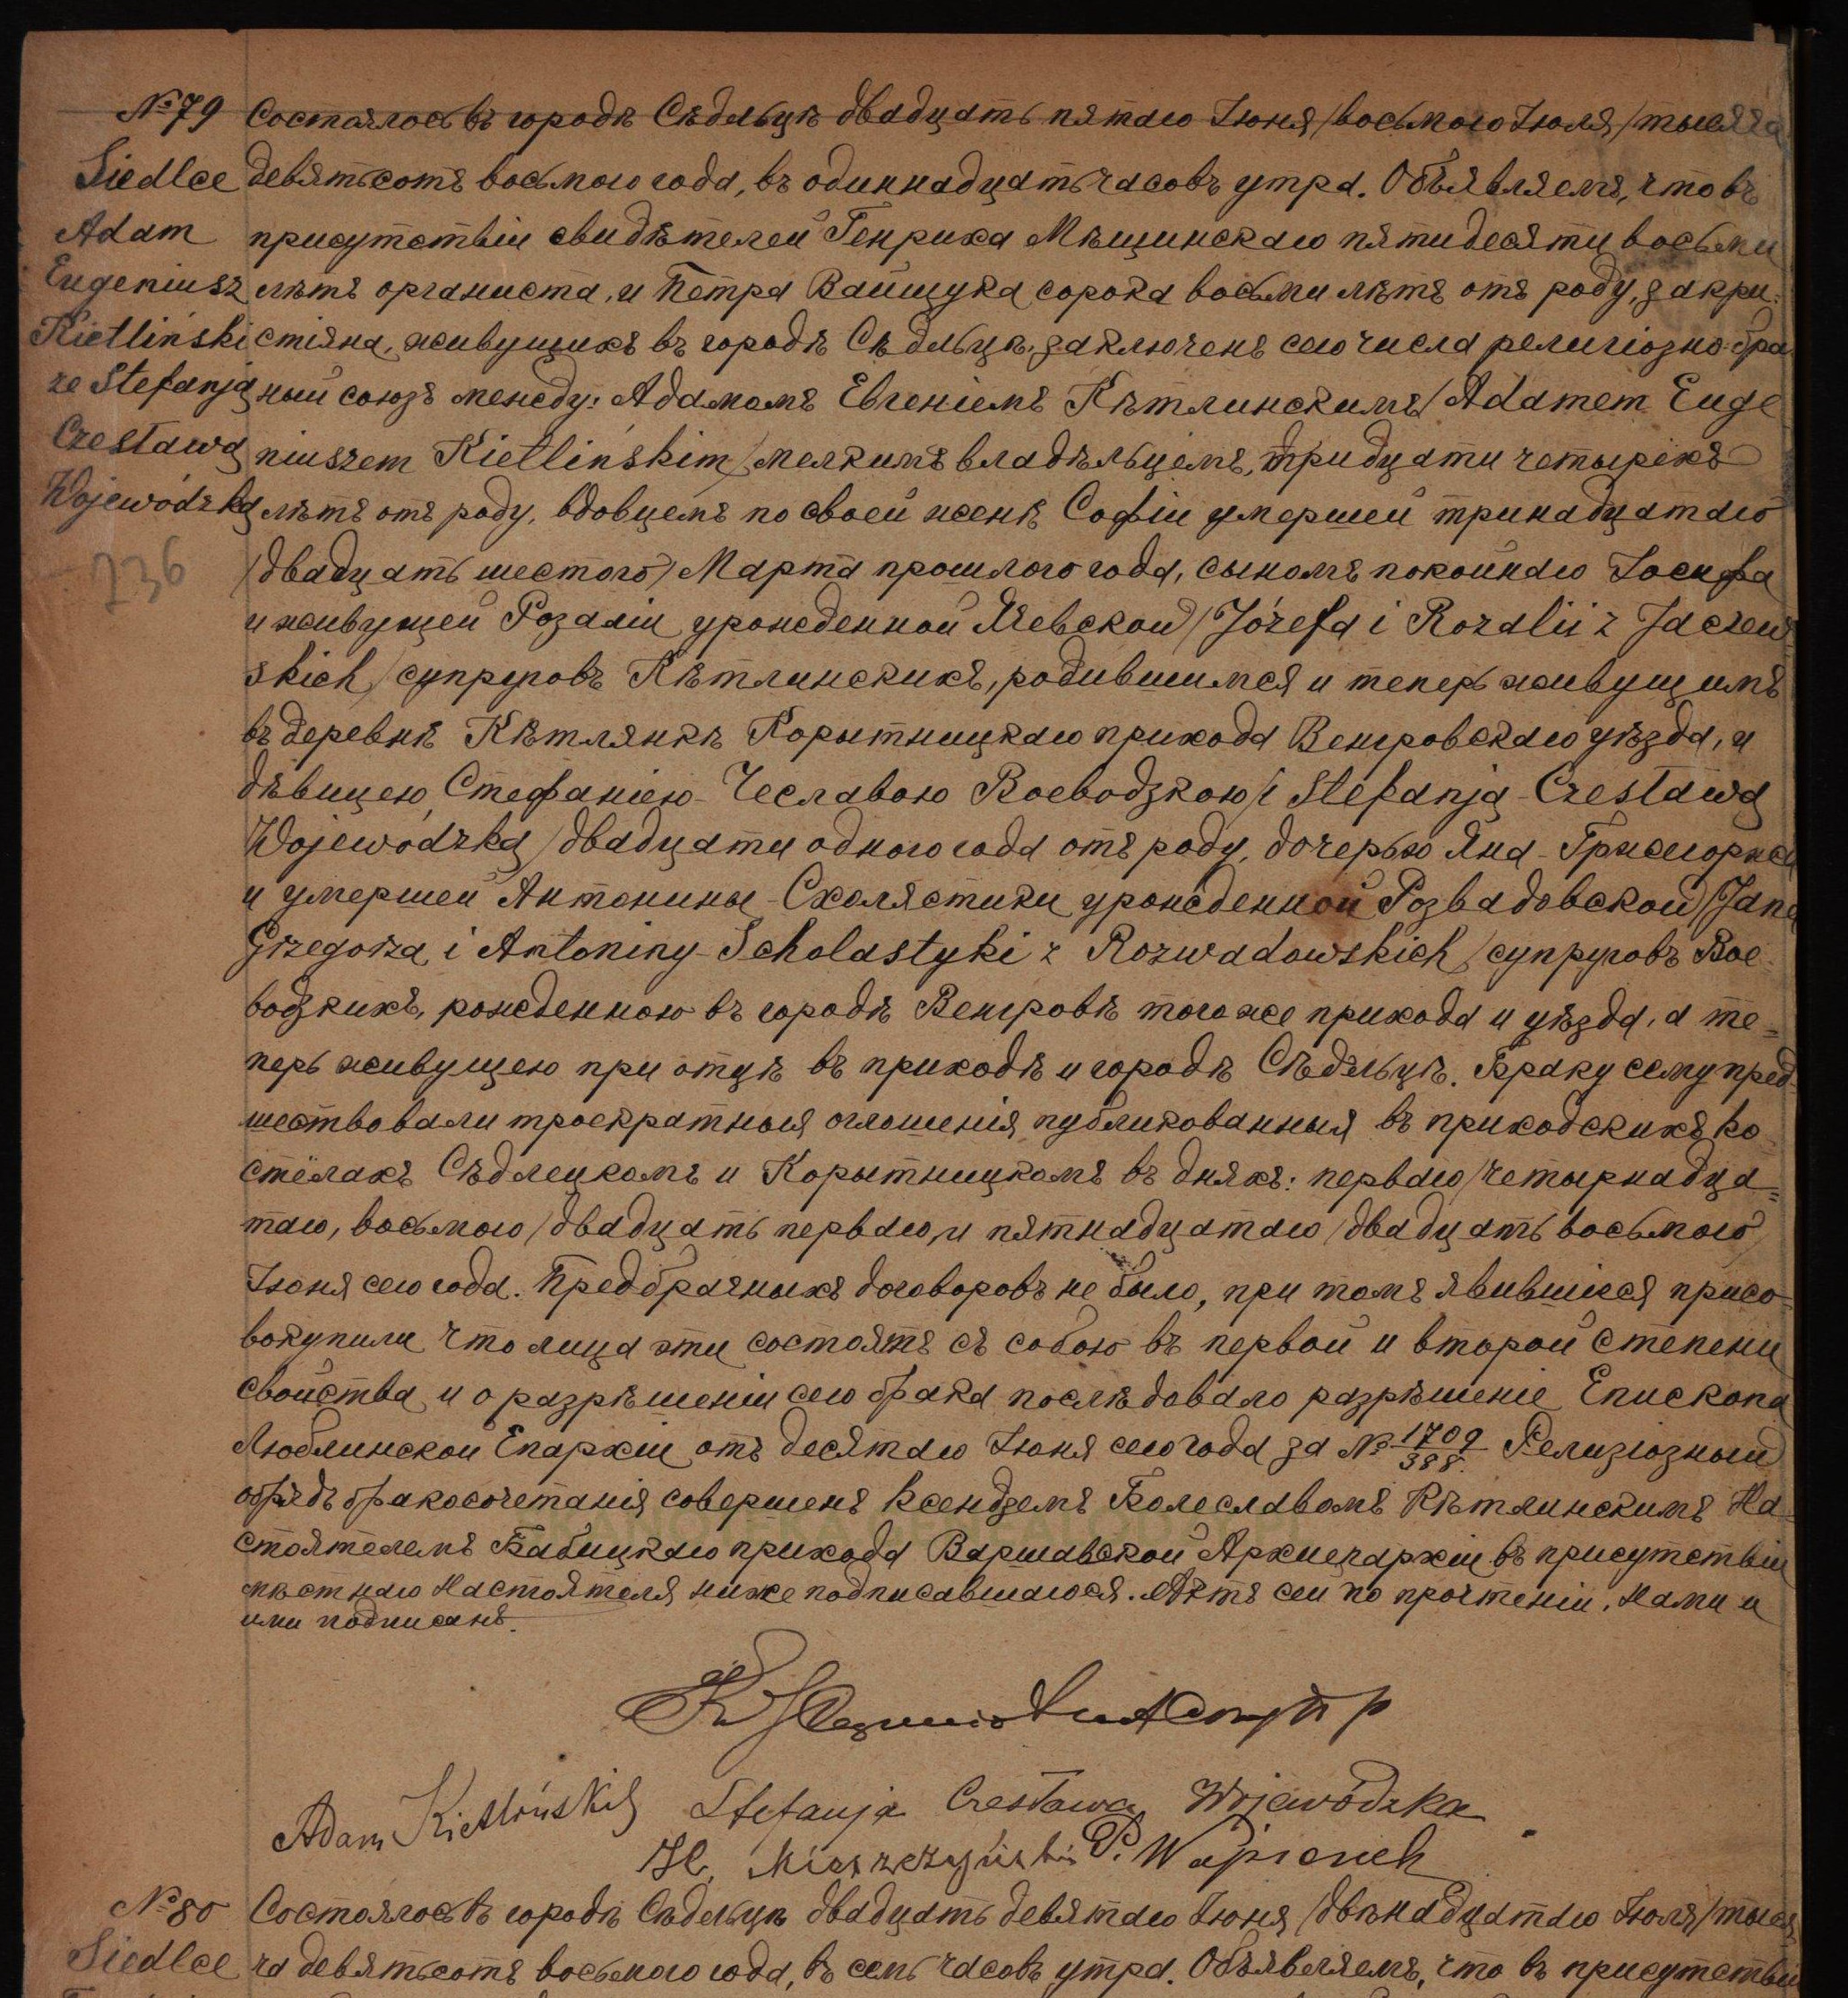 № 79 Состоялось въ городѣ Сѣдльцѣ двадцать пятаго Іюня /восьмого Іюля/ тысяча
Siedlce девятьсотъ восьмого года, въ одиннадцать часовъ утра. Объявляемъ, что въ
Adam присутствіи свидѣтелей Генриха Мѣщинскаго пятидесяти восьми
Eugeniusz лѣтъ органиста, и Петра Вайщука сорока восьми лѣтъ отъ роду, закри-
Kietliński стіяна, живущихъ въ городѣ Сѣдльцѣ, заключенъ сего числа религіозно-бра
ze Stefanją ный союзъ между: Адамомъ Евгеніемъ Кѣтлинскимъ /Adamem Euge
Czesławą niuszem Kietlińskim/ мелкимъ владѣльцемъ, тридцати четырехъ
Wojewódzką лѣтъ отъ роду, вдовцемъ по своей женѣ Софіи умершей тринадцатаго
236 /двадцать шестого/ Марта прошлого года, сыномъ покойнаго Іосифа
и живущей Розаліи урожденной Ячевской /Józefa i Rozalii z Jaczew
skich/ супруговъ Кѣтлинскихъ, родившимся и теперь живущимъ
въ деревнѣ Кѣтлянкѣ Корытницкаго прихода Венгровскаго уѣзда, и
дѣвицею Стефаніею-Чеславою Воеводзкою /i Stefanją-Czesławą
Wojewódzką/ двадцати одного года отъ роду, дочерью Яна-Гржегоржа
и умершей Антонины-Схолястики урожденной Розвадовской /Jana
Grzegorza i Antoniny-Scholastyki z Rozwadowskich/ супруговъ Вое-
водзкихъ, рожденною въ городѣ Венгровѣ того же прихода и уѣзда, а те=
перь живущею при отцѣ въ приходѣ и городѣ Сѣдльцѣ. Браку сему пред-
шествовали троекратныя оглошенія публикованныя въ приходскихъ ко
стёлахъ Сѣдлецкомъ и Корытницкомъ въ дняхъ: перваго /четырнадца=
таго, восьмого /двадцать перваго, и пятнадцатаго /двадцать восьмого/
Іюня сего года. Предбрачныхъ договоровъ не было, при томъ явившіеся присо-
вокупили что лица эти состоятъ съ собою въ первой и второй степени
свойства и о разрѣшеніи сего брака послѣдовало разрѣшеніе Епископа
Люблинской Епархіи отъ десятаго Іюня сего года за № 1709/388. Религіозный
обрядъ бракосочетанія совершенъ Ксендземъ Болеславомъ Кѣтлинскимъ На=
стоятелемъ Бабицкаго прихода Варшавской Архиепархіи въ присутствіи
мѣстнаго Настоятеля ниже подписавшагося. Актъ сей по прочтеніи, Нами и
ими подписанъ.
Adam Kietliński Stefanja Czesława Wojewódzka
H. P.
№ 80 Состоялось въ городѣ Сѣдльцѣ двадцать девятаго Іюня /двѣнадцатаго Іюля/ тыся
Siedlce ча девятьсотъ восьмого года, въ семь часовъ утра. Объявляемъ, что въ присутствіи